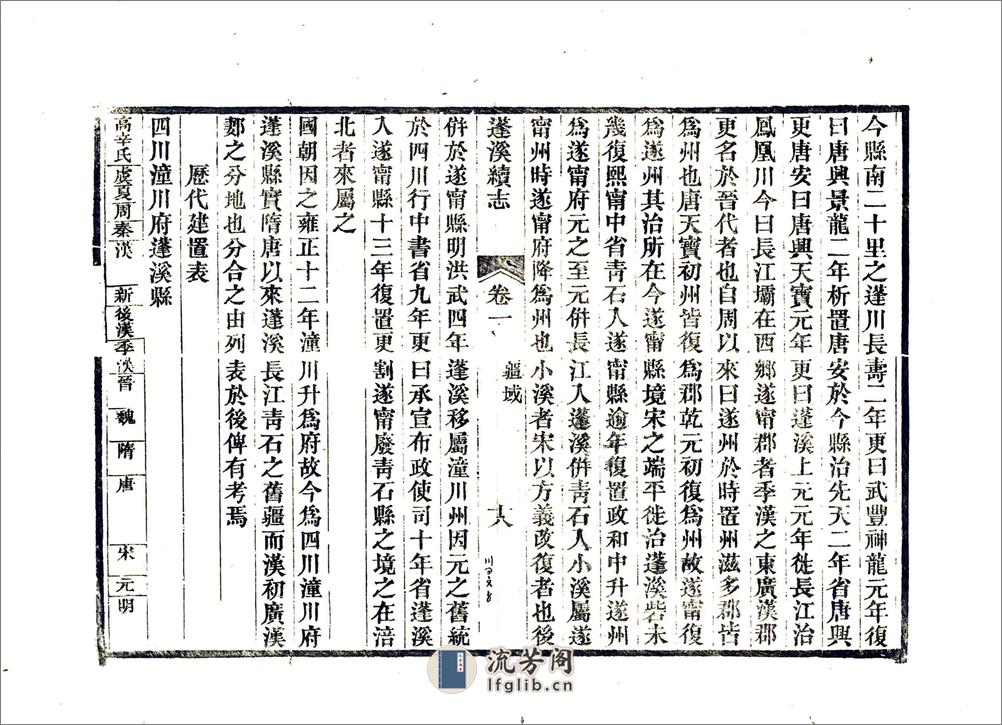 今縣南二十里之蓬川長壽二年更曰武豐神龍元年復
曰唐興景龍二年析置唐安於今縣治先天二年省唐興
更唐安曰唐興天寶元年更曰蓬溪上元元年徙長江治
鳳凰川今曰長江壩在西鄉遂甯郡者季漢之東廣漢郡
更名於晉代者也自周以來曰遂州於時置州滋多郡皆
為州也唐天寶初州皆復為郡乾元初復為州故遂甯復
為遂州其治所在今遂甯縣境宋之端平徙治蓬溪砦未
幾復熙甯中省青石入遂甯縣逾年復置政和中升遂州
為遂甯府元之至元併長江入蓬溪併青石入小溪屬遂
甯州時遂甯府降為州也小溪者宋以方義改復者也後
蓬溪續志
卷一
疆域
十八
併於遂甯縣明洪武四年蓬溪移屬潼川州因元之舊統
於四川行中書省九年更曰承宣布政使司十年省蓬溪
入遂甯縣十三年復置更割遂甯廢青石縣之境之在涪
北者來屬之
國朝因之雍正十二年潼川升為府故今為四川潼川府
蓬溪縣實隋唐以來蓬溪長江青石之舊疆而漢初廣漢
郪之分地也分合之由列表於後俾有考焉
歷代建置表
四川潼川府蓬溪縣
高辛氏 虞夏周秦漢 新 後漢 季漢 晉 魏 隋 唐 宋 元 明
流芳阁
lfglib.cn